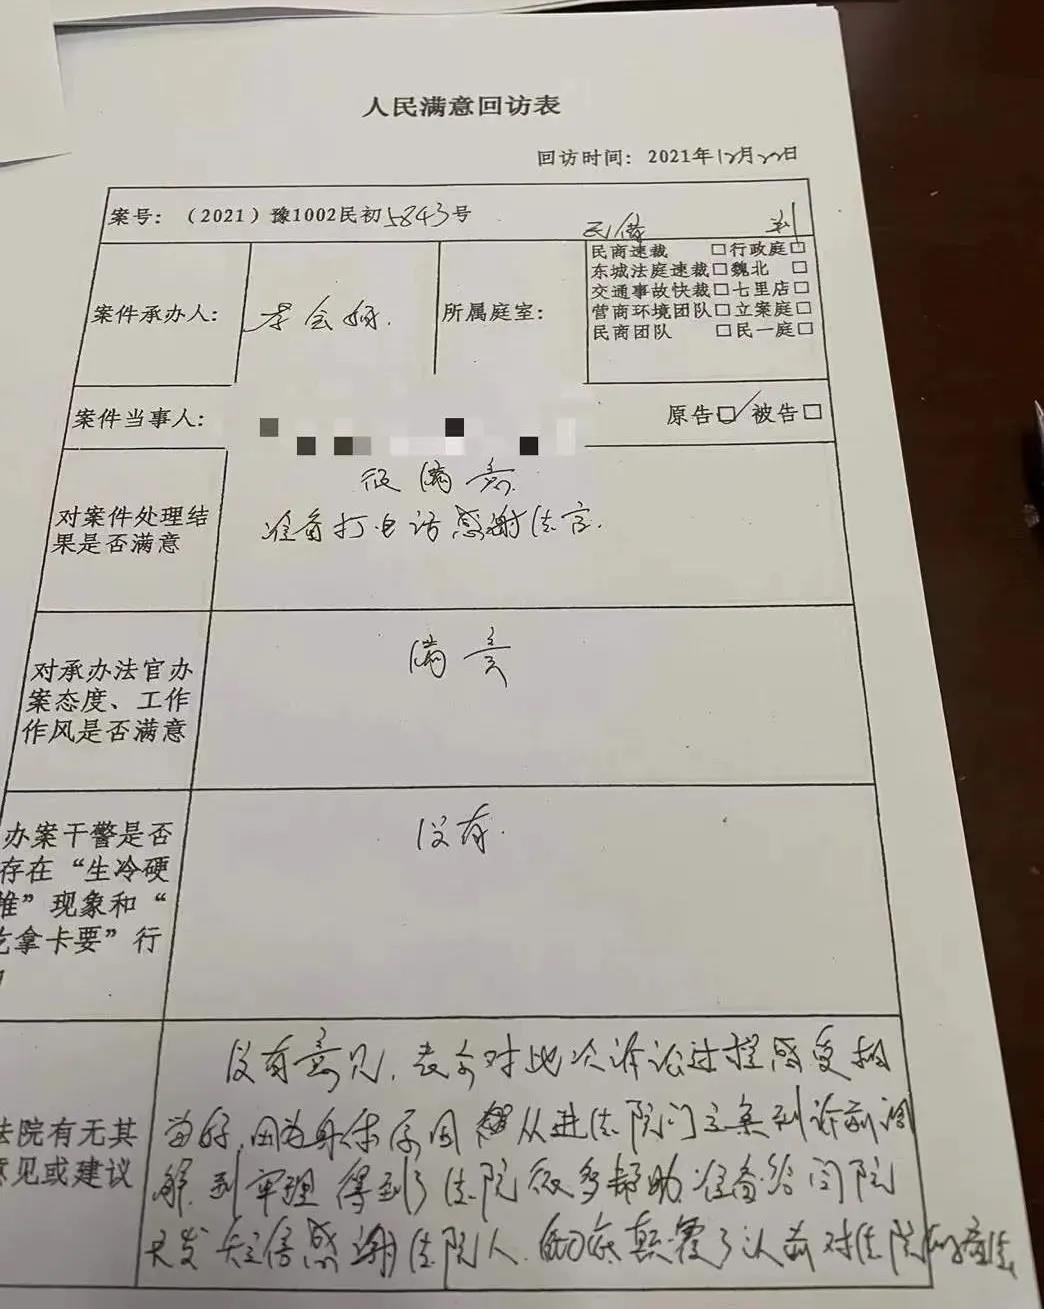 人民满意回访表
回访时间: 2021年12月22日
案号: (2021)豫1002民初5843号
案件承办人: 李会娟.
所属庭室:
民商速裁 □行政庭□
东城法庭速裁□魏北 □
交通事故快裁□七里店□
营商环境团队□立案庭□
民商团队 □民一庭□
案件当事人:
原告□✓被告□
对案件处理结
果是否满意
很满意.
准备打电话感谢法官.
对承办法官办
案态度、工作
作风是否满意
满意
办案干警是否
存在“生冷硬
推”现象和“
吃拿卡要”行
没有.
法院有无其
意见或建议
没有意见, 表示对此次诉讼过程感受相
当好, 因为身体原因 从进法院门立案到诉前调
解, 到审理 得到了法院很多帮助 准备给闫院
长发短信感谢法院人, 彻底颠覆了以前对法院的看法